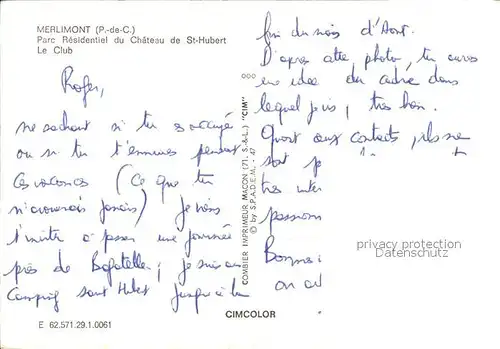 MERLIMONT (P.-de-C.)
Parc Résidentiel du Château de St-Hubert
Le Club
Roger,
ne sachant si tu es occupé
ou si tu t'ennuies pendant
ces vacances (ce que tu
n'avouerais jamais) je vais
t'inviter à passer une journée
près de Bagatelle; je suis au
Camping saint Hubert jusqu'à la
E 62.571.29.1.0061
COMBIER IMPRIMEUR MACON (71. S.-&-L.) "CIM"
© by S.P.A.D.E.M. - 47
CIMCOLOR
fin du mois d'Août.
D'après cette photo, tu auras
une idée du cadre dans
lequel je vis, très bon.
Quant aux contacts, ils ne
sont p
très inter
passionn
privacy protection
Datenschutz